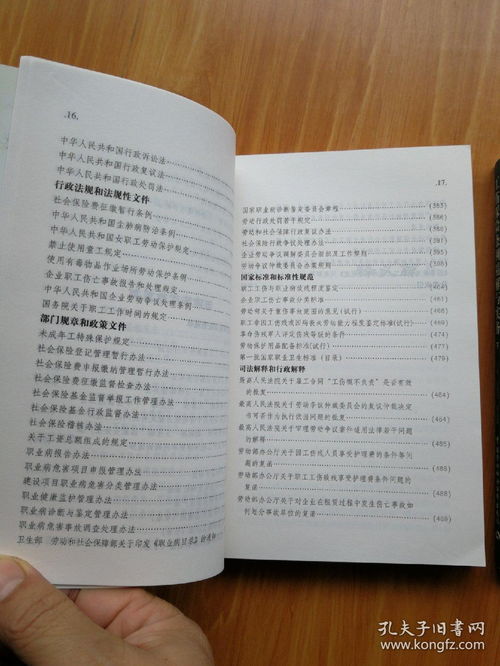 .16.
中华人民共和国行政诉讼法
中华人民共和国行政复议法
中华人民共和国行政处罚法
行政法规和法规性文件
社会保险费征缴暂行条例
中华人民共和国尘肺病防治条例
中华人民共和国女职工劳动保护规定
禁止使用童工规定
使用有毒物品作业场所劳动保护条例
企业职工伤亡事故报告和处理规定
中华人民共和国企业劳动争议处理条例
国务院关于职工工作时间的规定
部门规章和政策文件
未成年工特殊保护规定
社会保险登记管理暂行办法
社会保险费申报缴纳管理暂行办法
社会保险费征缴监督检查办法
社会保险基金监督举报工作管理办法
社会保险基金行政监督办法
社会保险稽核办法
关于工资总额组成的规定
职业病报告办法
职业病危害项目申报管理办法
建设项目职业病危害分类管理办法
职业健康监护管理办法
职业病诊断与鉴定管理办法
职业病危害事故调查处理办法
卫生部 劳动和社会保障部关于印发《职业病目录》的通知
.17.
国家职业病诊断鉴定委员会章程 (383)
劳动行政处罚若干规定
劳动和社会保障行政复议办法
社会保险行政争议处理办法
企业劳动争议调解委员会组织及工作规则
劳动争议仲裁委员会办案规则
国家标准和标准性规范
职工工伤与职业病致残程度鉴定
企业职工伤亡事故分类标准
劳动部关于重伤事故范围的意见(试行) (469)
职工非因工伤残或因病丧失劳动能力程度鉴定标准(试行) (471)
革命伤残军人评定伤残等级的条件 (474)
劳动保护用品配备标准(试行) (477)
第一批国家职业卫生标准(目录) (479)
司法解释和行政解释
最高人民法院关于雇工合同“工伤概不负责”是否有效
的批复 (484)
最高人民法院关于劳动争议仲裁委员会的复议仲裁决定
书可否作为执行依据问题的批复
最高人民法院关于审理劳动争议案件适用法律若干问题
的解释
劳动部办公厅关于因工伤残人员享受护理费的条件等问
题的复函 (488)
劳动部办公厅关于职工工伤致残享受护理费条件问题的
复函 (488)
劳动部办公厅关于对企业在租赁过程中发生伤亡事故如
何划分事故单位的复函
孔夫子旧书网
www.kongfz.com